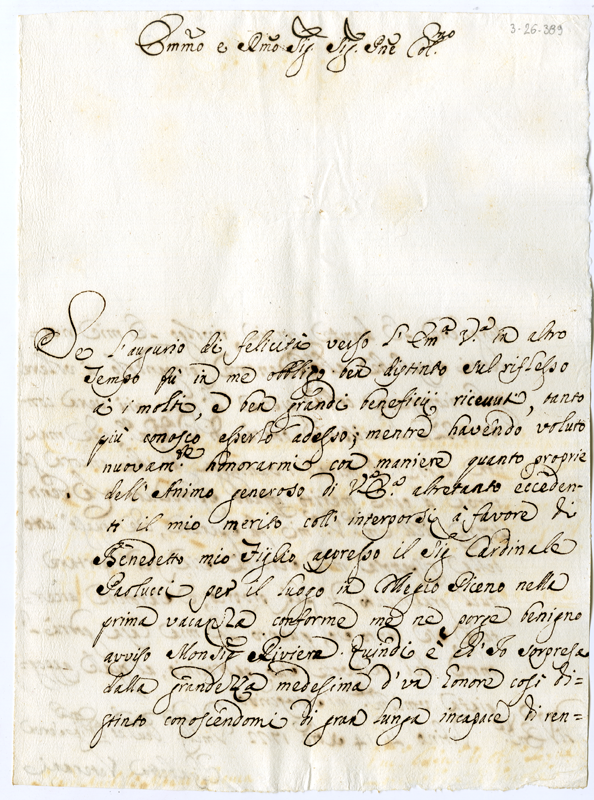 3-26-389
Emmo e Rmo Sig. Sig. Pne Col.mo
Se l'augurio di felicità verso l'Em.a V.a in altro
Tempo fù in me obbligo ben distinto sul riflesso
ai i molti, e ben grandi beneficij riceuuti, tanto
più conosco esserlo adesso; mentre havendo voluto
nuovam.te honorarmi con maniere quanto proprie
dell'Animo generoso di V.E.a altretanto ecceden-
ti il mio merito coll'interporsi à favore di
Benedetto mio Figlio appresso il Sig. Cardinale
Paolucci per il luogo in Collegio Piceno nella
prima vacanza conforme me ne porge benigno
avviso Monsig. Riviera. Quindi è ch'Io sorpresa
dalla grandezza medesima d'un honore così di=
stinto conoscendomi di gran lunga incapace di ren=